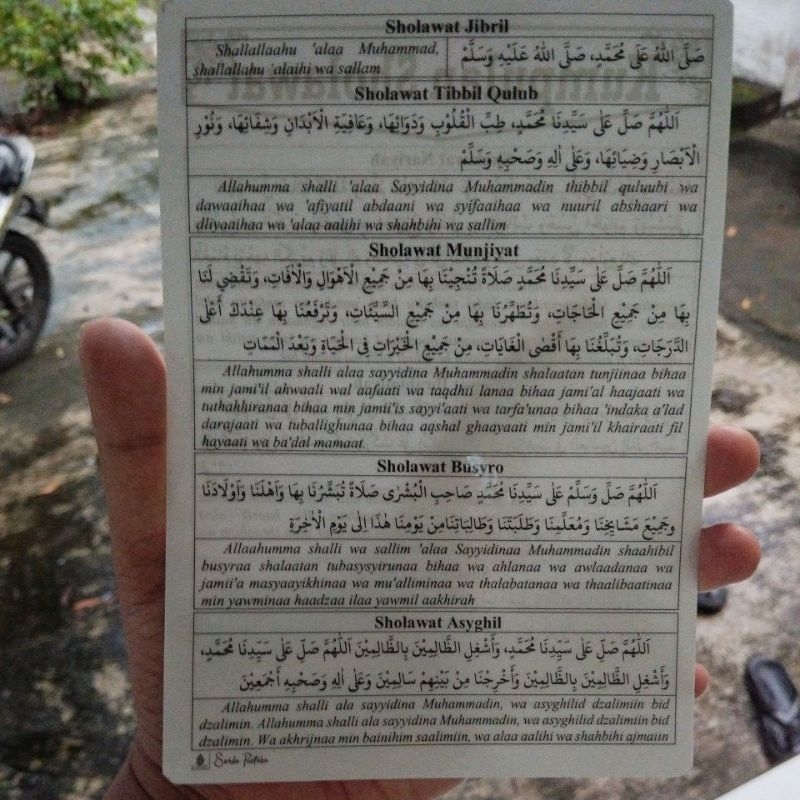 Sholawat Jibril
Shallallaahu 'alaa Muhammad,
shallallahu 'alaihi wa sallam
صَلَّى اللهُ عَلَى مُحَمَّدٍ، صَلَّى اللهُ عَلَيْهِ وَسَلَّمْ
Sholawat Tibbil Qulub
اَللّٰهُمَّ صَلِّ عَلٰى سَيِّدِنَا مُحَمَّدٍ، طِبِّ الْقُلُوْبِ وَدَوَائِهَا، وَعَافِيَةِ الْاَبْدَانِ وَشِفَائِهَا، وَنُوْرِ
الْاَبْصَارِ وَضِيَائِهَا، وَعَلٰى اٰلِهِ وَصَحْبِهِ وَسَلِّمْ
Allahumma shalli 'alaa Sayyidina Muhammadin thibbil quluubi wa
dawaaihaa wa 'afiyatil abdaani wa syifaaihaa wa nuuril abshaari wa
dliyaaihaa wa 'alaa aalihi wa shahbihi wa sallim
Sholawat Munjiyat
اَللّٰهُمَّ صَلِّ عَلٰى سَيِّدِنَا مُحَمَّدٍ صَلَاةً تُنْجِيْنَا بِهَا مِنْ جَمِيْعِ الْاَهْوَالِ وَالْاٰفَاتِ، وَتَقْضِى لَنَا
بِهَا مِنْ جَمِيْعِ الْحَاجَاتِ، وَتُطَهِّرُنَا بِهَا مِنْ جَمِيْعِ السَّيِّئَاتِ، وَتَرْفَعُنَا بِهَا عِنْدَكَ أَعْلَى
الدَّرَجَاتِ، وَتُبَلِّغُنَا بِهَا أَقْصَى الْغَايَاتِ، مِنْ جَمِيْعِ الْخَيْرَاتِ فِى الْحَيَاةِ وَبَعْدَ الْمَمَاتِ
Allahumma shalli alaa sayyidina Muhammadin shalaatan tunjiinaa bihaa
min jami'il ahwaali wal aafaati wa taqdhii lanaa bihaa jami'al haajaati wa
tuthahhiranaa bihaa min jamii'is sayyi'aati wa tarfa'unaa bihaa 'indaka a'lad
darajaati wa tuballighunaa bihaa aqshal ghaayaati min jami'il khairaati fil
hayaati wa ba'dal mamaat.
Sholawat Busyro
اَللّٰهُمَّ صَلِّ وَسَلِّمْ عَلٰى سَيِّدِنَا مُحَمَّدٍ صَاحِبِ الْبُشْرٰى صَلَاةً تُبَشِّرُنَا بِهَا وَاَهْلَنَا وَاَوْلَادَنَا
وجَمِيْعَ مَشَايِخِنَا وَمُعَلِّمِنَا وَطَلَبَتَنَا وَطَالِبَاتِنَامِنْ يَوْمِنَا هٰذَا اِلٰى يَوْمِ الْاٰخِرَةِ
Allaahumma shalli wa sallim 'alaa Sayyidinaa Muhammadin shaahibil
busyraa shalaatan tubasysyirunaa bihaa wa ahlanaa wa awlaadanaa wa
jamii'a masyaayikhinaa wa mu'alliminaa wa thalabatanaa wa thaalibaatinaa
min yawminaa haadzaa ilaa yawmil aakhirah
Sholawat Asyghil
اَللّٰهُمَّ صَلِّ عَلٰى سَيِّدِنَا مُحَمَّدٍ، وَأَشْغِلِ الظَّالِمِيْنَ بِالظَّالِمِيْنَ اَللّٰهُمَّ صَلِّ عَلٰى سَيِّدِنَا مُحَمَّدٍ،
وَأَشْغِلِ الظَّالِمِيْنَ بِالظَّالِمِيْنَ وَأَخْرِجْنَا مِنْ بَيْنِهِمْ سَالِمِيْنَ وَعَلٰى اٰلِهِ وَصَحْبِهِ أَجْمَعِيْنَ
Allahumma shalli ala sayyidina Muhammadin, wa asyghilid dzalimiin bid
dzalimin. Allahumma shalli ala sayyidina Muhammadin, wa asyghilid dzalimiin bid
dzalimin. Wa akhrijnaa min bainihim saalimiin, wa alaa aalihi wa shahbihi ajmaiin